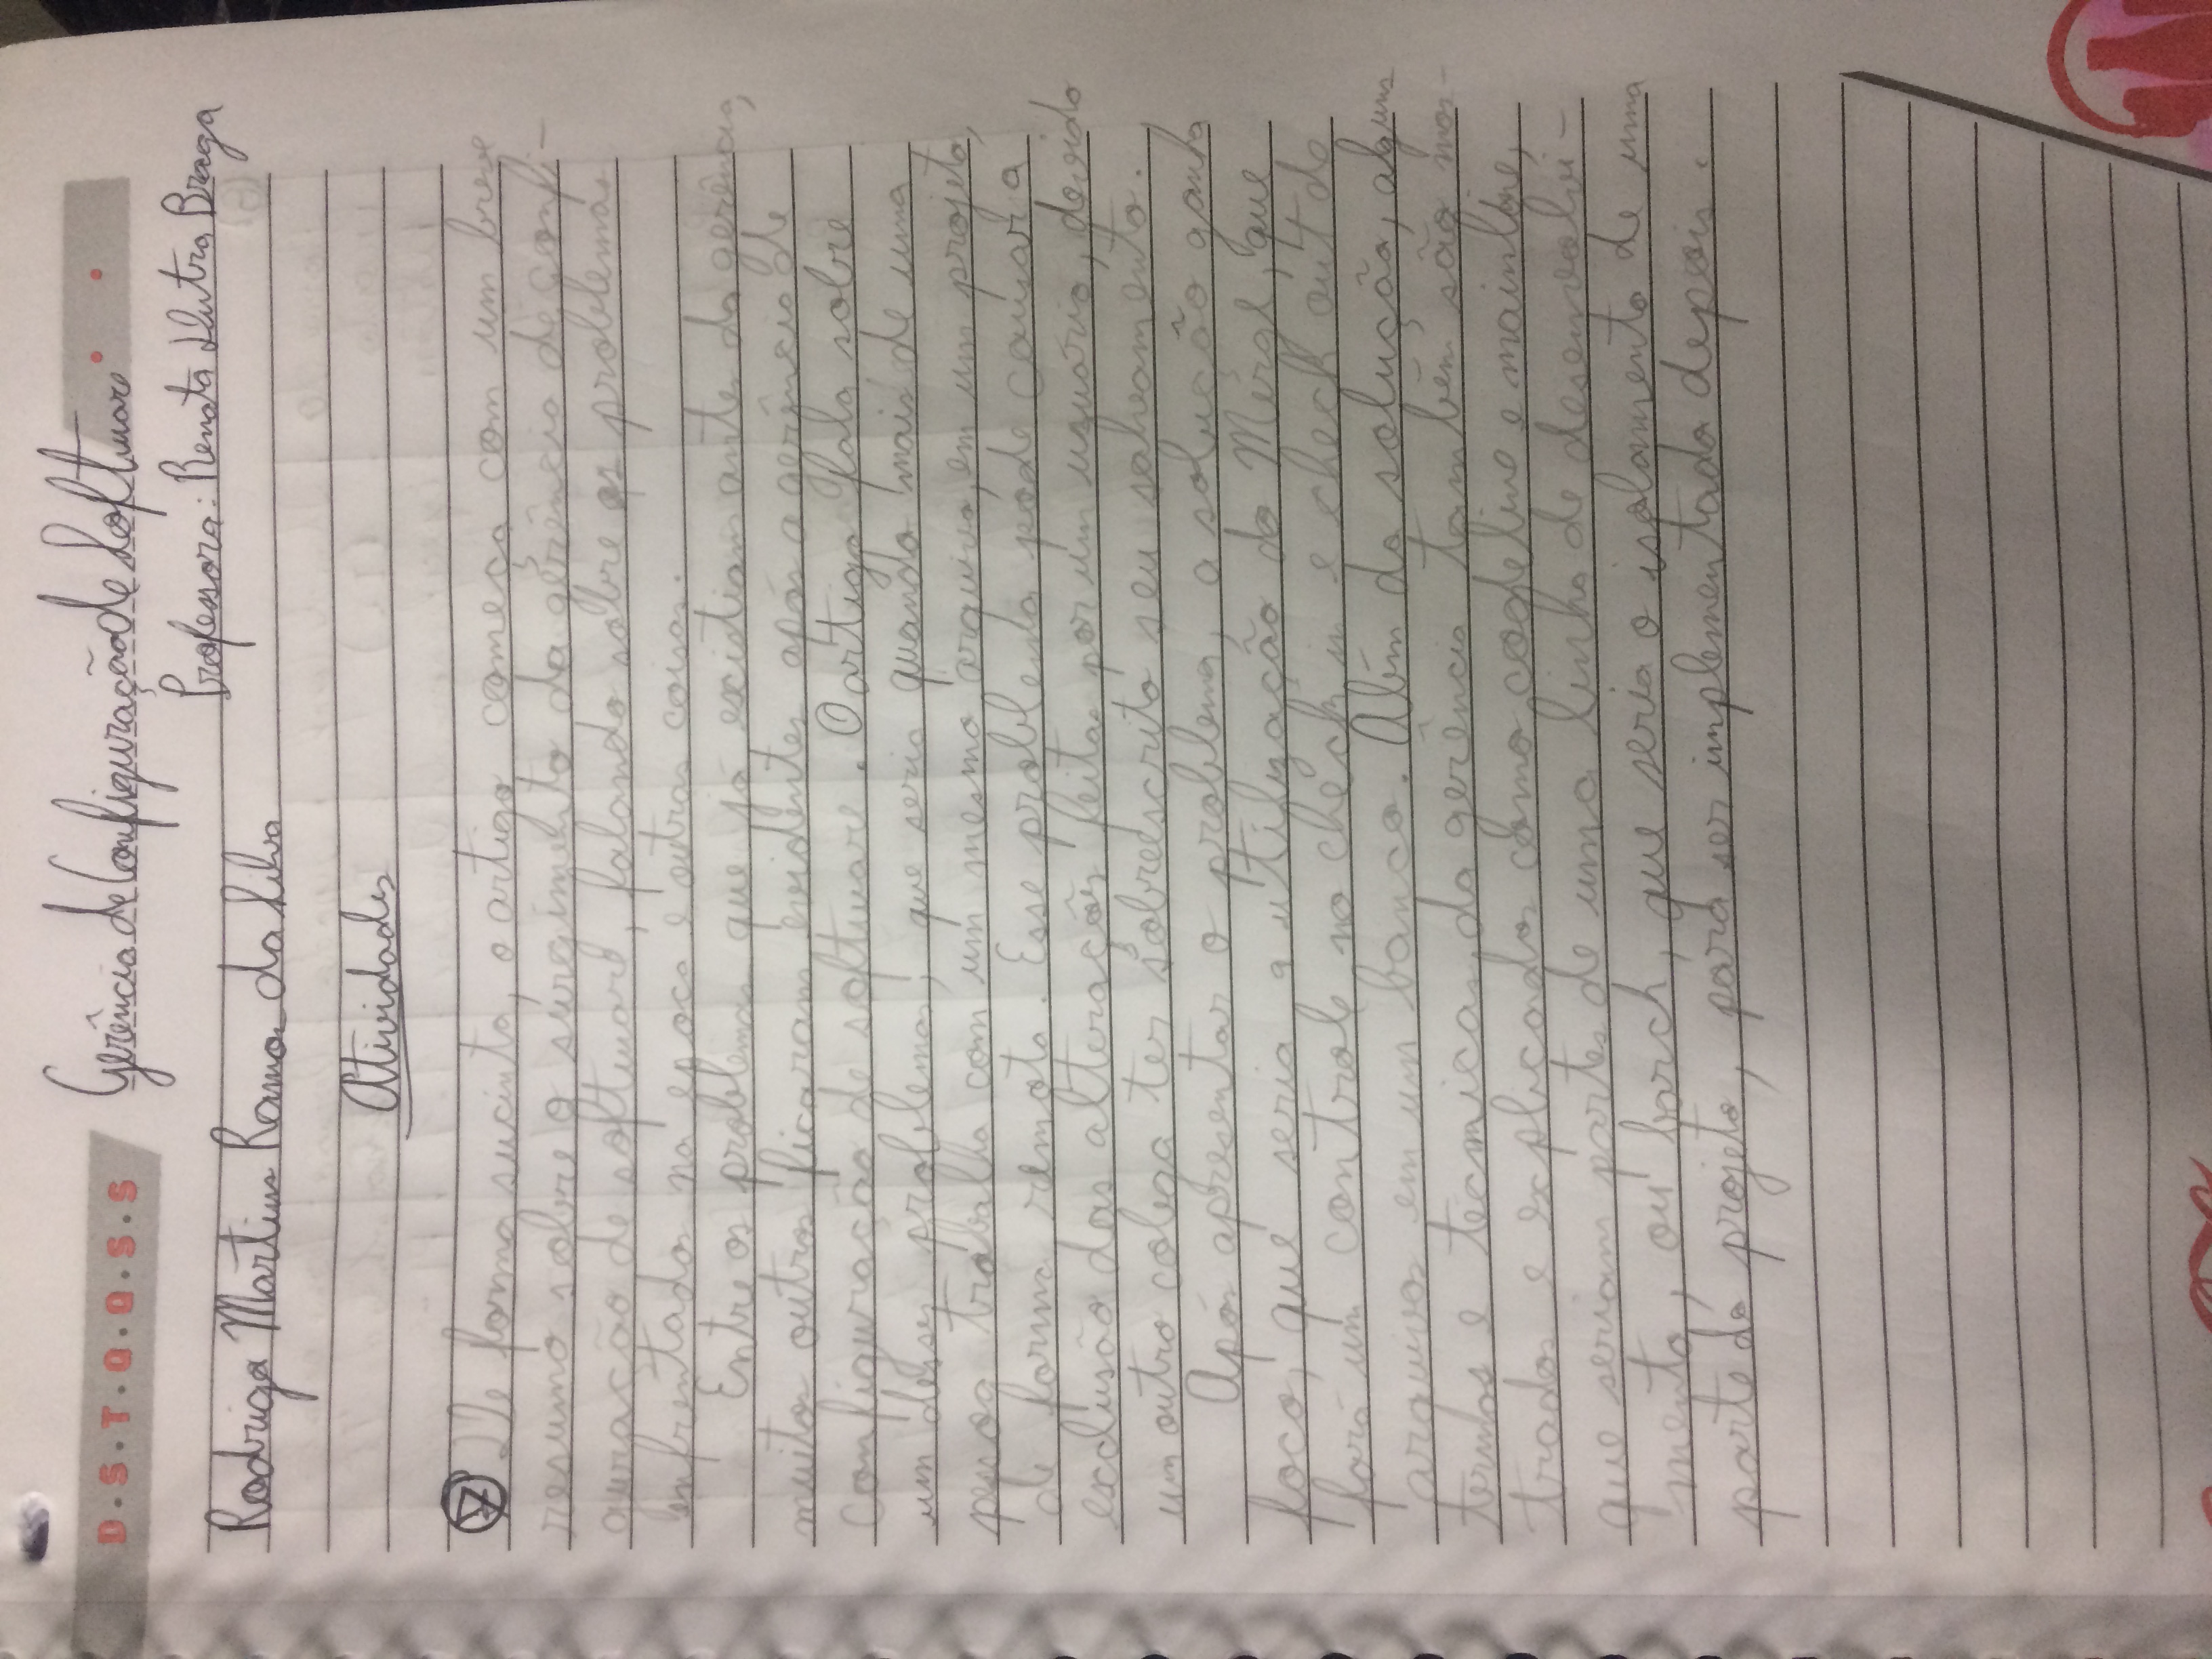 D.S.T.Q.Q.S.S
Gerência de Configuração de Software
Professora: Renata Dutra Braga
Rodrigo Martins Ramos da Silva
Atividades
7 De forma sucinta, o artigo começa com um breve
resumo sobre o surgimento da gerência de confi-
guração de software, falando sobre os problemas
enfrentados na epoca e outras coisas.
Entre os problemas que já existiam antes da gerência,
muitos outros ficaram evidentes após a gerência de
configuração de software. O artigo fala sobre
um desses problemas, que seria quando mais de uma
pessoa trabalha com um mesmo arquivo, em um projeto,
de forma remota. Esse problema pode causar a
exclusão das alterações feitas por um usuário, devido
um outro colega ter sobreescrito seu salvamento.
Após apresentar o problema, a solução ganha
foco, que seria a utilização do Merge, que
fará um controle no check in e check out de
arquivos em um banco. Além da solução, alguns
termos e tecnicas da gerência também são mos-
trados e explicados como codeline e mainline,
que seriam partes de uma linha de desenvolvi-
mento, ou barch, que seria o isolamento de uma
parte do projeto, para ser implementada depois.